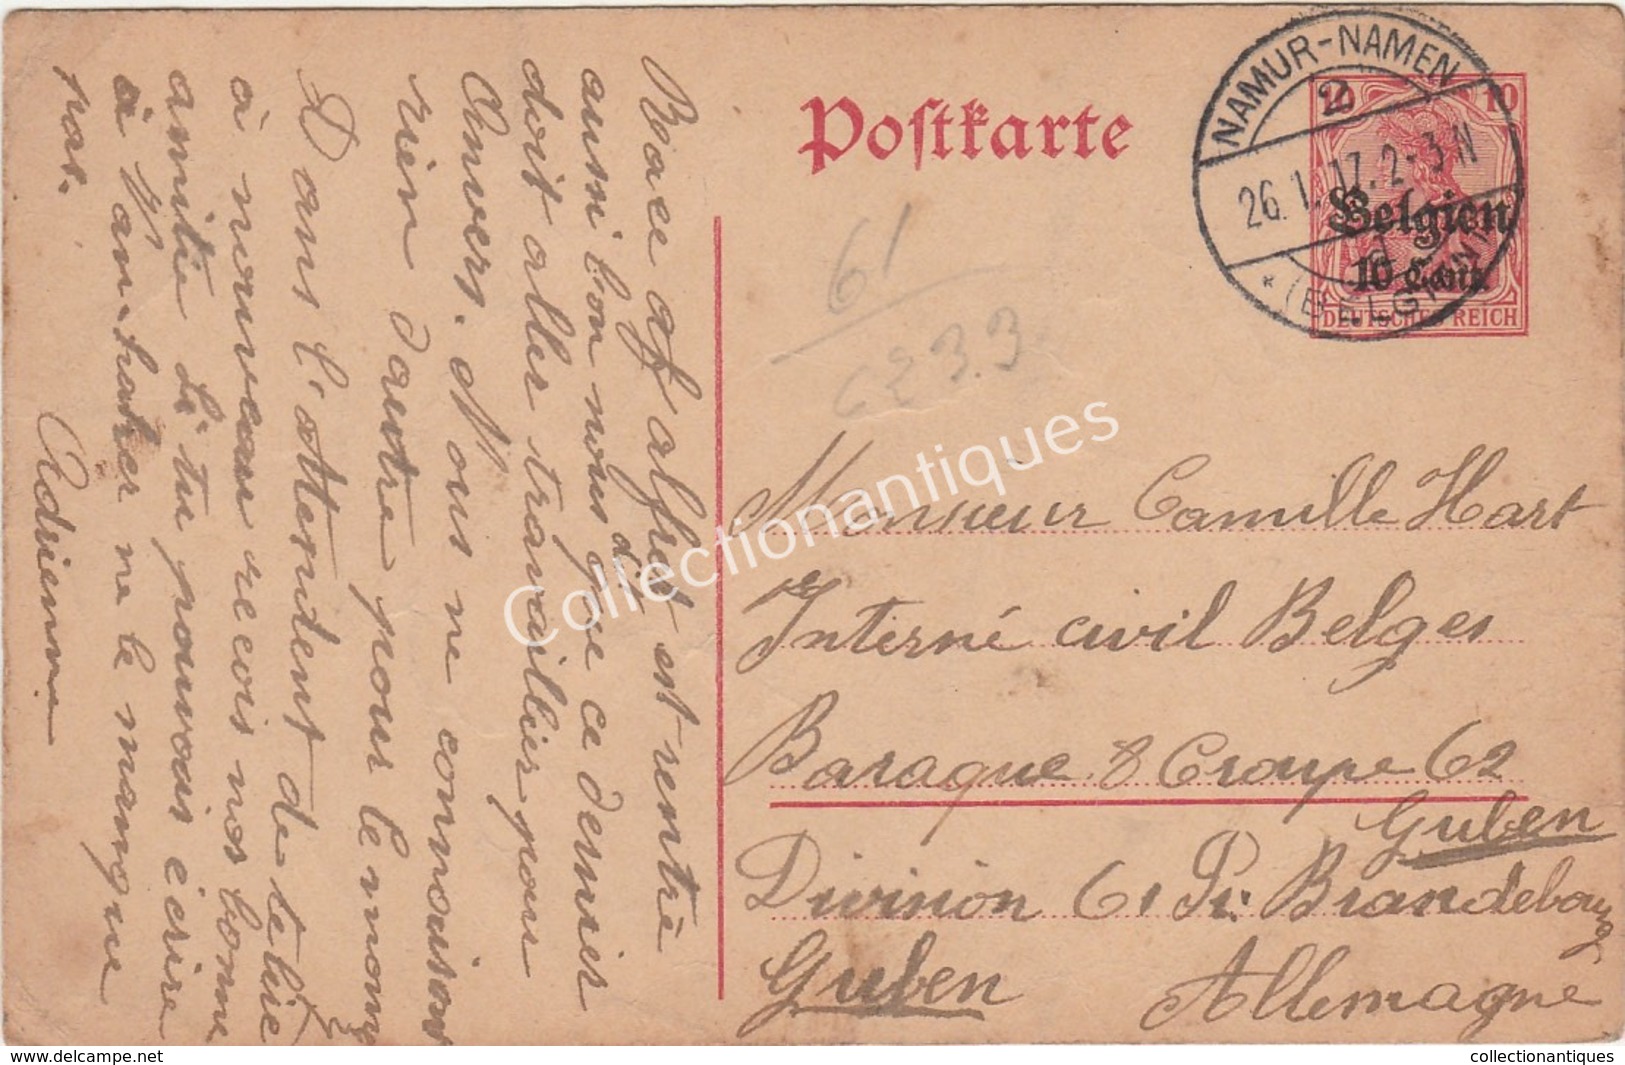 Postkarte
NAMUR-NAMEN
2
26.1.17.2-3 N
* (BELGIEN)
10
Belgien
10 Cent.
DEUTSCHES REICH
61
3.3
Monsieur Camille Hart
Interné civil Belges
Baraque 8 Croupe 62
Guben
Division 61 Pr. Brandebourg
Guben Allemagne
est rentré
aussi bon nous que ce dernier
doit aller travaillier pour d'ici
Anvers. Nous ne connoisons
rien d'autre pour le mom
Dans l'attendent de te lire
à nouveau recois nos bonne
amitié. Si tu pouvais écrire
à ne le manque
pas.
Adrienne
Collectionantiques
www.delcampe.net
collectionantiques